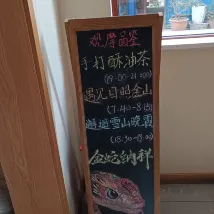 观摩品鉴
手打酥油茶
(19:00-21:00)
遇见日照金山
(7:40-8:15)
邂逅雪山晚霞
(18:30-19:00)
金蛇纳祥